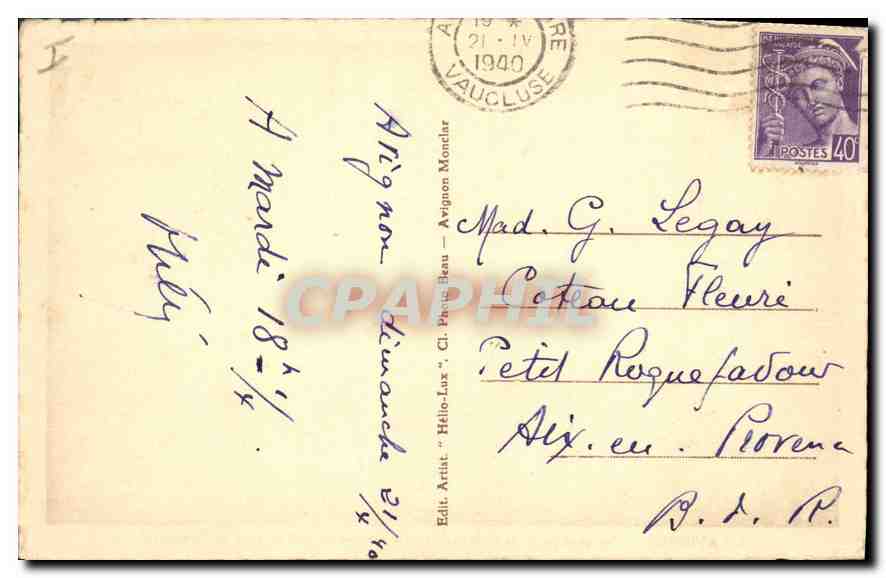 I
19 *
21 · IV
1940
VAUCLUSE
POSTES 40c
Avignon dimanche 21/4 40
A mardi 18h 1/4
Edit. Artist. " Hélio-Lux ". Cl. Photo Beau — Avignon Monclar
Mad. G. Legay
Coteau Fleuri
Petit Roquefavour
Aix. en. Provence
B. d. R.
CPAPHIL